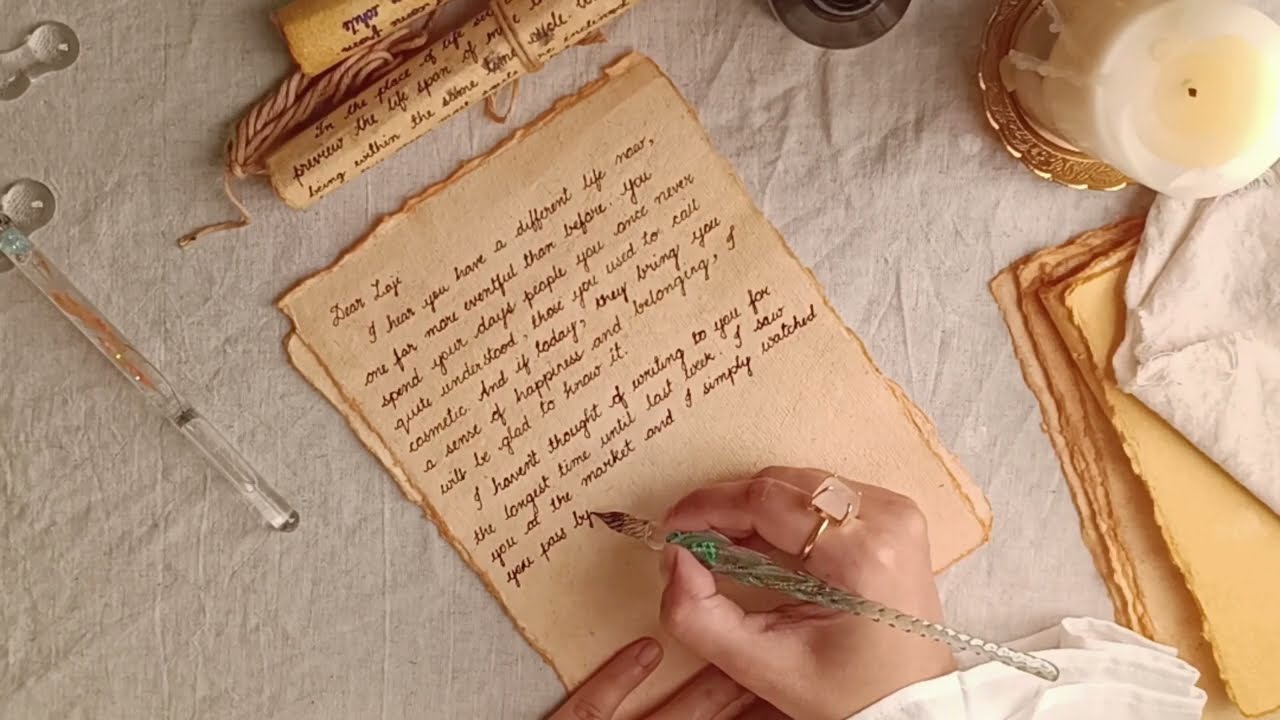 In the place of life
preview the life span of
being within the same time cycle.
Dear Laji
I hear you have a different life now,
one far more eventful than before. You
spend your days people you once never
quite understood, those you used to call
cosmetic. And if today, they bring you
a sense of happiness and belonging, I
will be glad to know it.
I haven't thought of writing to you for
the longest time until last week. I saw
you at the market and I simply watched
you pass by